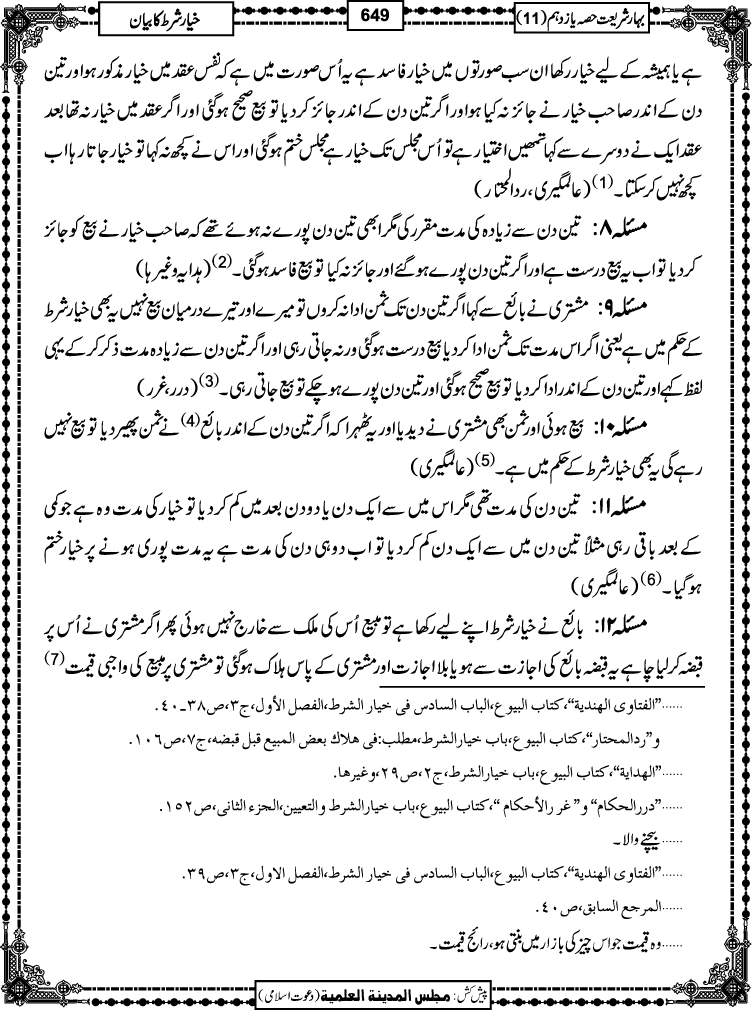 بہار شریعت حصہ یازدہم (11)
649
خیار شرط کا بیان
ہے یا ہمیشہ کے لیے خیار رکھا ان سب صورتوں میں خیار فاسد ہے یہ اُس صورت میں ہے کہ نفس عقد میں خیار مذکور ہو اور تین
دن کے اندر صاحب خیار نے جائز نہ کیا ہو اور اگر تین دن کے اندر جائز کر دیا تو بیع صحیح ہوگئی اور اگر عقد میں خیار نہ تھا بعد
عقد ایک نے دوسرے سے کہا تمھیں اختیار ہے تو اُس مجلس تک خیار ہے مجلس ختم ہوگئی اور اس نے کچھ نہ کہا تو خیار جاتا رہا اب
کچھ نہیں کر سکتا۔(1) (عالمگیری، ردالمحتار)
مسئلہ ۸: تین دن سے زیادہ کی مدت مقرر کی مگر ابھی تین دن پورے نہ ہوئے تھے کہ صاحب خیار نے بیع کو جائز
کر دیا تو اب یہ بیع درست ہے اور اگر تین دن پورے ہو گئے اور جائز نہ کیا تو بیع فاسد ہوگئی۔(2) (ہدایہ وغیرہا)
مسئلہ ۹: مشتری نے بائع سے کہا اگر تین دن تک ثمن ادا نہ کروں تو میرے اور تیرے درمیان بیع نہیں یہ بھی خیار شرط
کے حکم میں ہے یعنی اگر اس مدت تک ثمن ادا کر دیا بیع درست ہوگئی ورنہ جاتی رہی اور اگر تین دن سے زیادہ مدت ذکر کرکے یہی
لفظ کہے اور تین دن کے اندر ادا کر دیا تو بیع صحیح ہوگئی اور تین دن پورے ہو چکے تو بیع جاتی رہی۔(3) (درر، غرر)
مسئلہ ۱۰: بیع ہوئی اور ثمن بھی مشتری نے دیدیا اور یہ ٹھہرا کہ اگر تین دن کے اندر بائع(4) نے ثمن پھیر دیا تو بیع نہیں
رہے گی یہ بھی خیار شرط کے حکم میں ہے۔(5) (عالمگیری)
مسئلہ ۱۱: تین دن کی مدت تھی مگر اس میں سے ایک دن یا دو دن بعد میں کم کر دیا تو خیار کی مدت وہ ہے جو کمی
کے بعد باقی رہی مثلاً تین دن میں سے ایک دن کم کر دیا تو اب دو ہی دن کی مدت ہے یہ مدت پوری ہونے پر خیار ختم
ہوگیا۔(6) (عالمگیری)
مسئلہ ۱۲: بائع نے خیار شرط اپنے لیے رکھا ہے تو مبیع اُس کی ملک سے خارج نہیں ہوئی پھر اگر مشتری نے اُس پر
قبضہ کر لیا چاہے یہ قبضہ بائع کی اجازت سے ہو یا بلا اجازت اور مشتری کے پاس ہلاک ہوگئی تو مشتری پر مبیع کی واجبی قیمت(7)
......"الفتاوی الهندیة"،کتاب البیوع،الباب السادس فی خیار الشرط،الفصل الأول،ج٣،ص٣٨ـ٤٠.
و"ردالمحتار"،کتاب البیوع،باب خیارالشرط،مطلب:فی هلاك بعض المبیع قبل قبضه،ج٧،ص١٠٦.
......"الهدایة"،کتاب البیوع،باب خیارالشرط،ج٢،ص٢٩،وغیرها.
......"دررالحکام" و" غررالأحکام "،کتاب البیوع،باب خیارالشرط والتعیین،الجزء الثانی،ص١٥٢.
...... بیچنے والا۔
......"الفتاوی الهندیة"،کتاب البیوع،الباب السادس فی خیار الشرط،الفصل الاول،ج٣،ص٣٩.
......المرجع السابق،ص٤٠.
......وہ قیمت جو اس چیز کی بازار میں بنتی ہو، رائج قیمت۔
پیش کش: مجلس المدینة العلمیة (دعوت اسلامی)